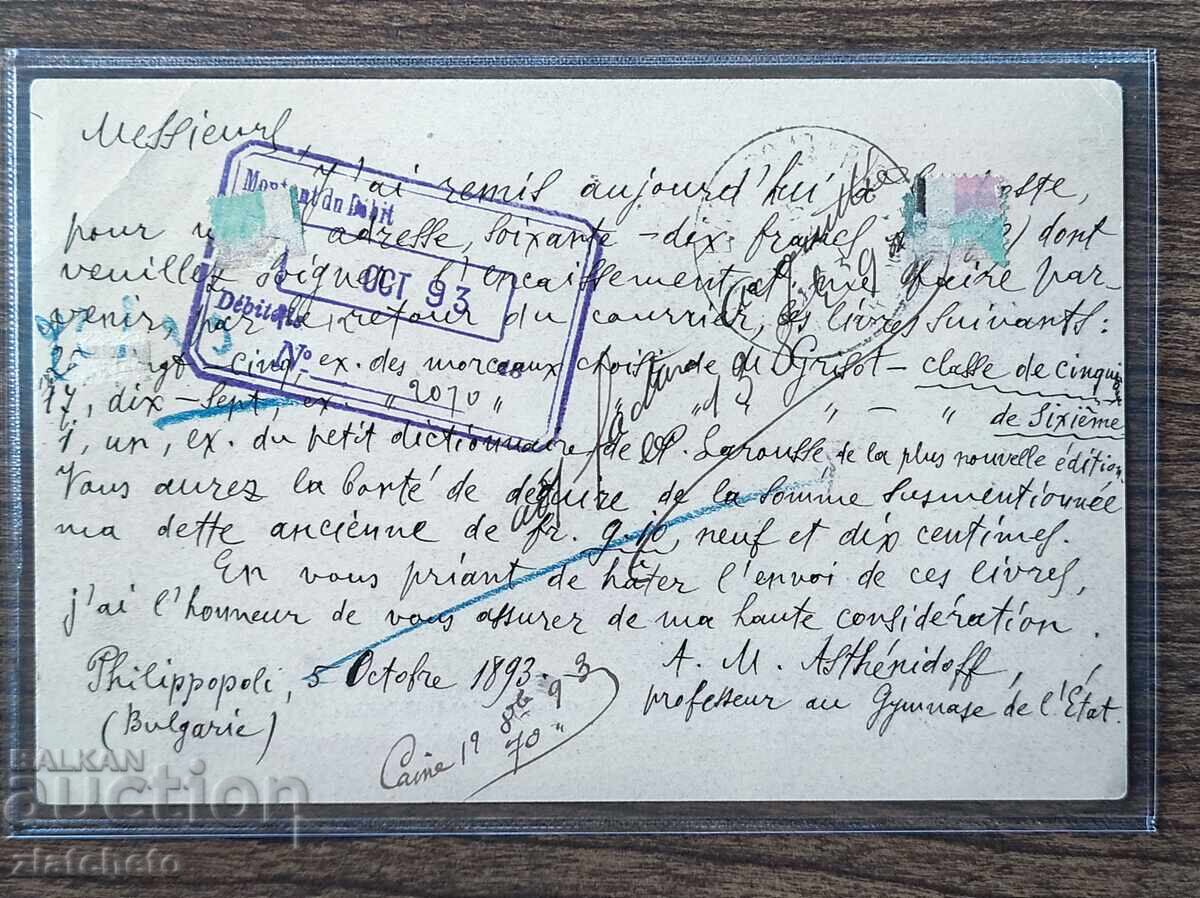 Messieurs,
J'ai remis aujourd'hui à la poste,
pour adresse, soixante-dix francs dont
veuillez soigner l'encaissement et me faire par-
venir, par le retour du courrier, les livres suivants:
25, vingt-cinq, ex. des morceaux choisis de Grisot – classe de cinqui
17, dix-sept, ex. " " " – " de sixième
1, un, ex. du petit dictionnaire de P. Larousse de la plus nouvelle édition
Vous aurez la bonté de déduire de la somme susmentionnée
ma dette ancienne de fr. 9.10, neuf et dix centimes.
En vous priant de hâter l'envoi de ces livres,
j'ai l'honneur de vous assurer de ma haute considération.
Philippopoli, 5 Octobre 1893.
(Bulgarie)
A. M. Asthénidoff,
professeur au Gymnase de l'État.
Montant du Débit
OCT 93
Débit
No
2070
19 8bre 93
70 "
BALKAN
auction
zlatcheto